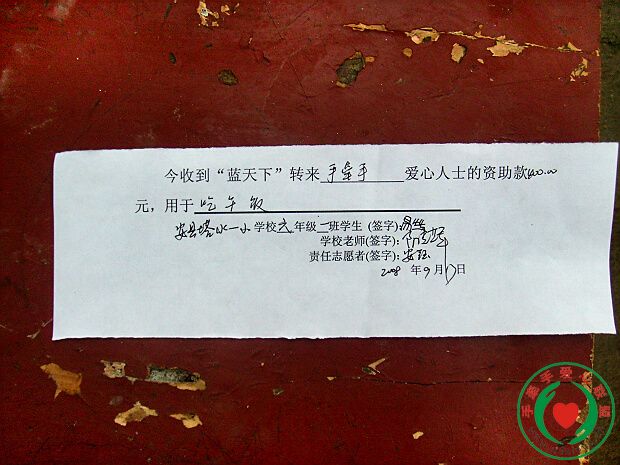 今收到“蓝天下”转来 手牵手 爱心人士的资助款400.00
元，用于 吃午饭
安县塔水一小学校六年级一班学生 (签字):
学校老师(签字):
责任志愿者(签字):安珏
2008 年9月17日
手牵手爱心联盟